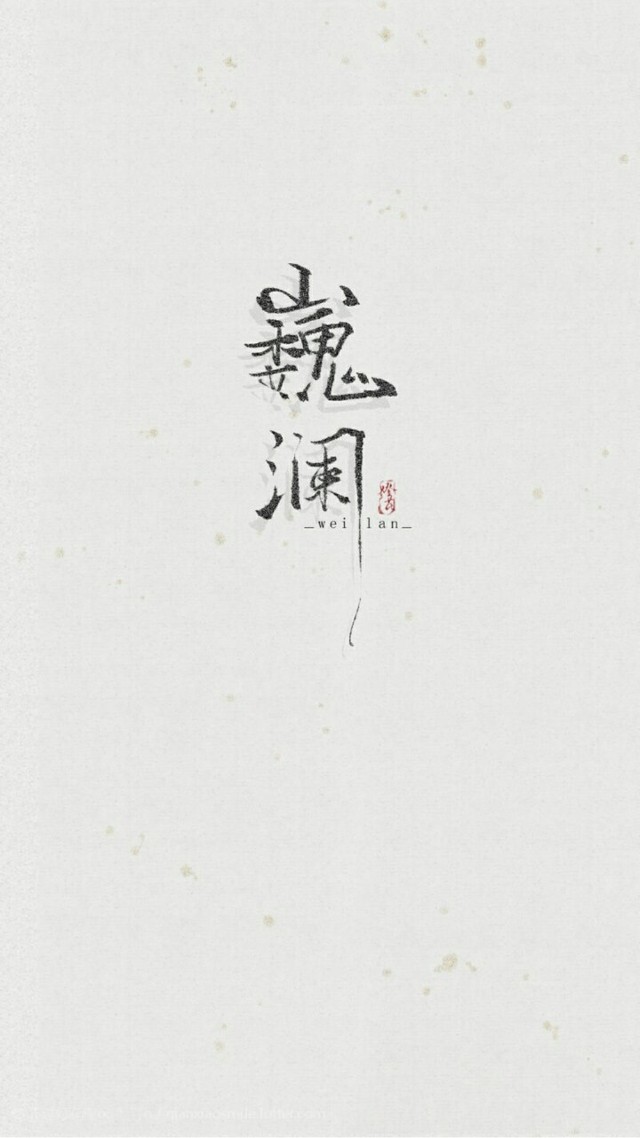 巍
澜
_wei lan_